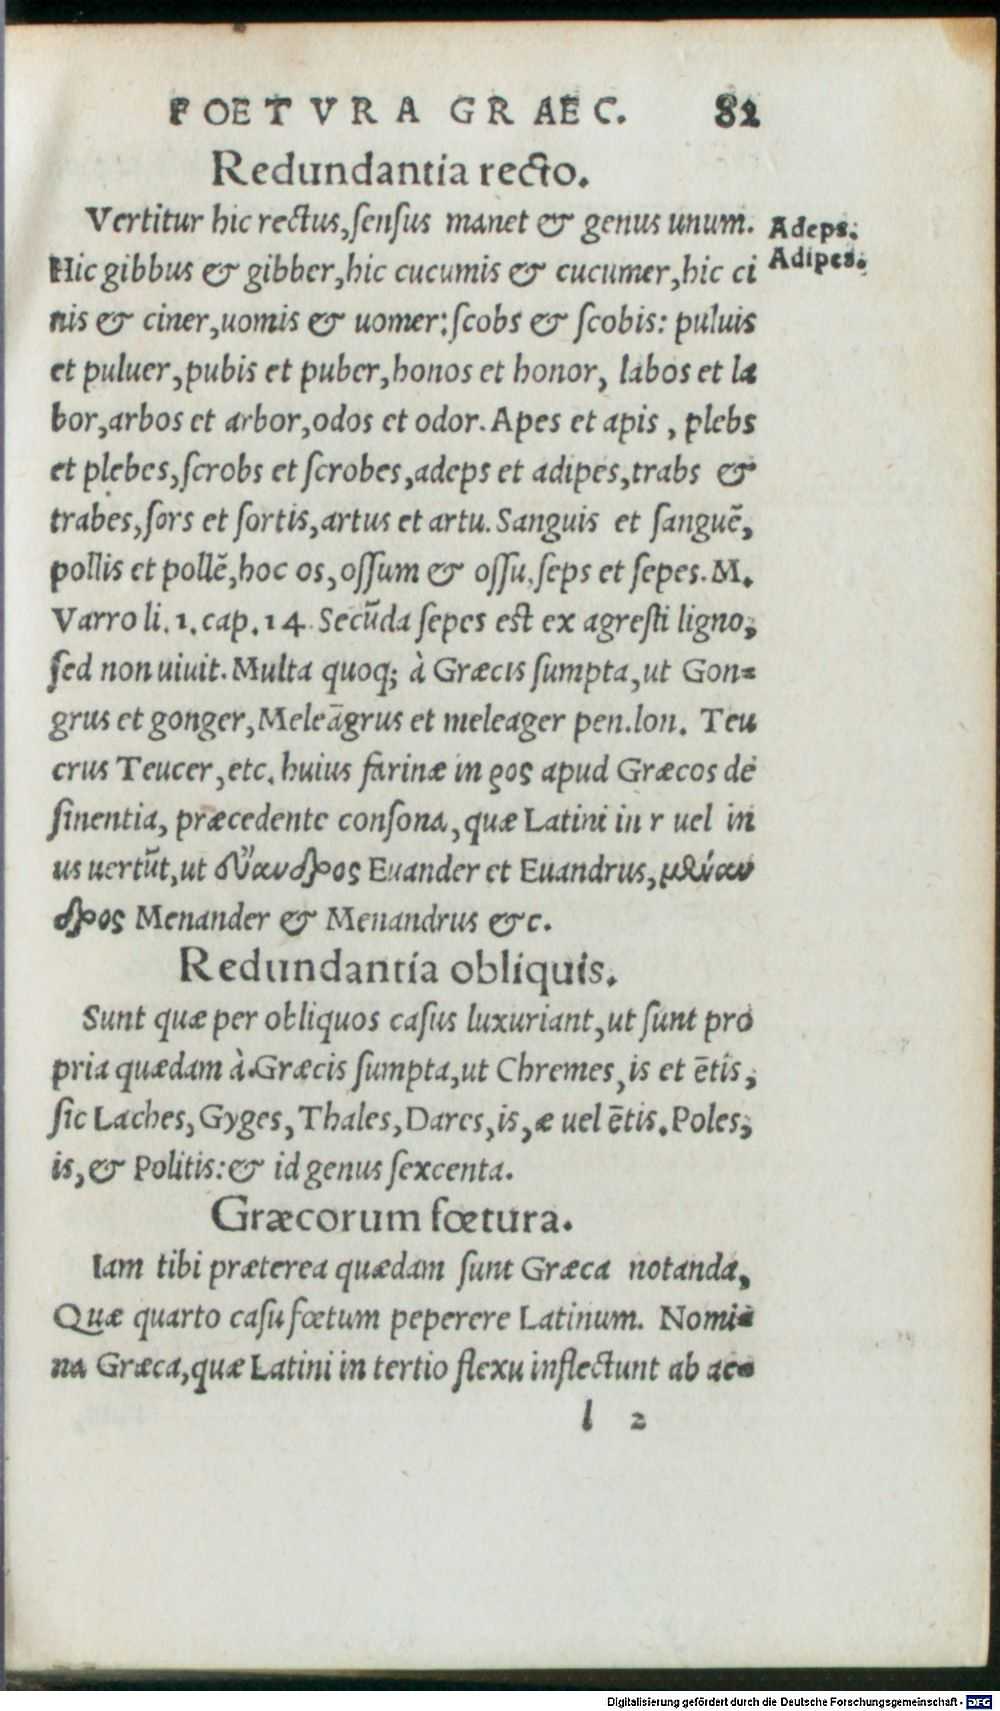 FOETVRA GRAEC. 82
Redundantia recto.
Vertitur hic rectus, sensus manet & genus unum.
Adeps.
Adipes.
Hic gibbus & gibber, hic cucumis & cucumer, hic ci
nis & ciner, uomis & uomer: scobs & scobis: puluis
et puluer, pubis et puber, honos et honor, labos et la
bor, arbos et arbor, odos et odor. Apes et apis, plebs
et plebes, scrobs et scrobes, adeps et adipes, trabs &
trabes, sors et sortis, artus et artu. Sanguis et sanguē,
pollis et pollē, hoc os, ossum & ossu, seps et sepes. M.
Varro li. 1. cap. 14. Secūda sepes est ex agresti ligno,
sed non uiuit. Multa quoq; à Græcis sumpta, ut Gon=
grus et gonger, Meleāgrus et meleager pen. lon. Teu
crus Teucer, etc. huius farinæ in ρος apud Græcos de
sinentia, præcedente consona, quæ Latini in r uel in
us uertūt, ut εὔανδρος Euander et Euandrus, μέναν
δρος Menander & Menandrus &c.
Redundantia obliquis.
Sunt quæ per obliquos casus luxuriant, ut sunt pro
pria quædam à Græcis sumpta, ut Chremes, is et ētis,
sic Laches, Gyges, Thales, Dares, is, æ uel ētis. Poles,
is, & Politis: & id genus sexcenta.
Græcorum fœtura.
Iam tibi præterea quædam sunt Græca notanda,
Quæ quarto casu fœtum peperere Latinum. Nomi=
na Græca, quæ Latini in tertio flexu inflectunt ab ac=
l 2
Digitalisierung gefördert durch die Deutsche Forschungsgemeinschaft - DFG